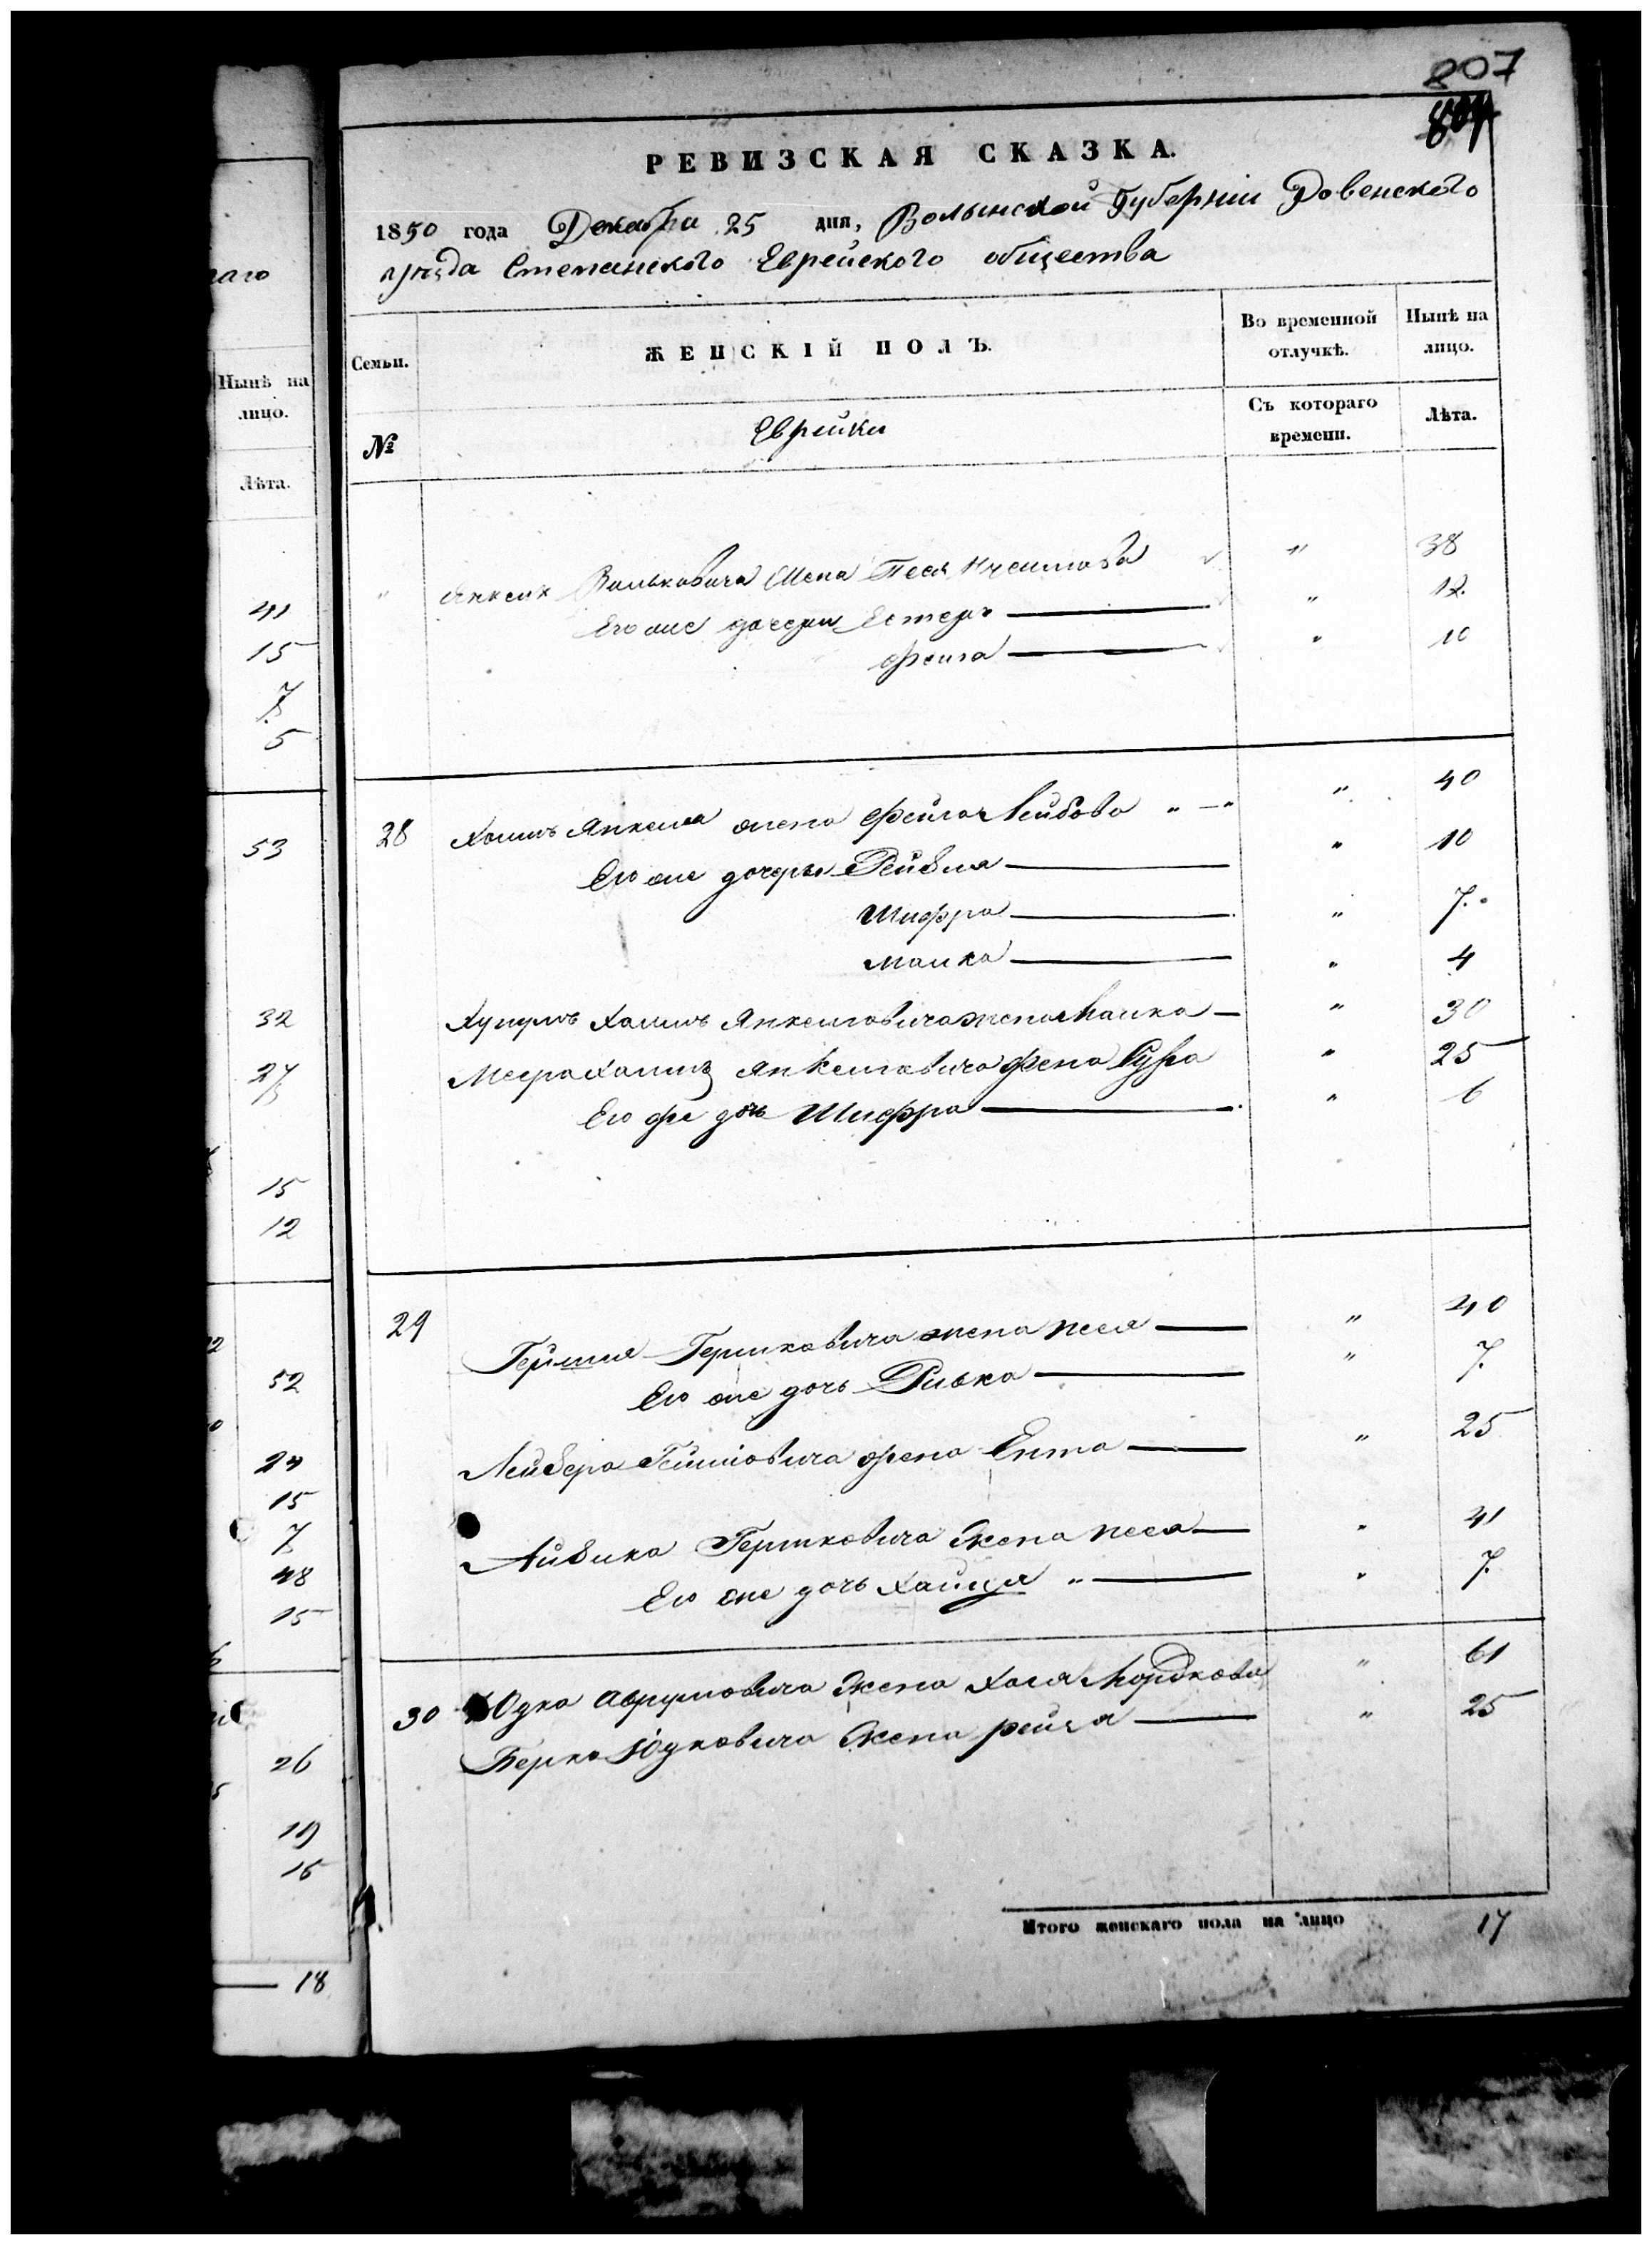 807
РЕВИЗСКАЯ СКАЗКА.
1850 года Декабря 25 дня, Волынской Губерніи Ровенского
уезда Степанского Еврейского общества
наго
Нынѣ на
лицо.
Лѣта.
41
15
7
5
53
32
27
15
12
52
24
15
7
48
15
26
19
16
18
Семьи.
ЖЕНСКІЙ ПОЛЪ.
Во временной
отлучкѣ.
Нынѣ на
лицо.
№
Еврейки
Съ котораго
времени.
Лѣта.
" Янкеля Вольковича жена Песя " 38
Его же дочери Естеръ " 12.
Фейга " 10
28 Хаимъ Янкеля жена Фейга Лейбова " — " " 40
Его же дочеры Рейзля " 10
Шифра " 7.
Малка " 4
Хаимъ Янкелевича жена Малка — " 30
Хаимъ Янкелевича жена Сура " 25
Его же дочь Шифра " 6
29 Гершковича жена песя — " 40
Его же дочь Ривка — " 7.
Лейзера жена Ента — " 25
Айзика Гершковича жена песя — " 41
Его же дочь Хайця " — " 7.
30 Юдка Аврумовича жена Хая Мордкова " 61
Берка Юдковича жена рейзя — " 25
Итого женскаго пола на лицо 17